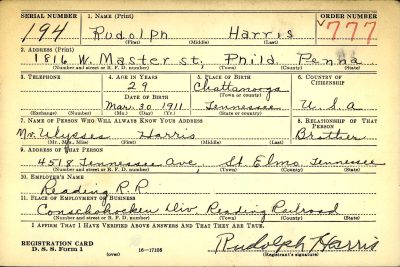 SERIAL NUMBER 1. NAME (Print) ORDER NUMBER
194 Rudolph Harris V777
(First) (Middle) (Last)
2. ADDRESS (Print)
1816 W. Master st, Phila. Penna
(Number and street or R. F. D. number) (Town) (County) (State)
3. TELEPHONE 4. AGE IN YEARS 5. PLACE OF BIRTH 6. COUNTRY OF CITIZENSHIP
29 Chattanooga
DATE OF BIRTH (Town or county)
Mar. 30. 1911 Tennessee U.S.A
(Exchange) (Number) (Mo.) (Day) (Yr.) (State or country)
7. NAME OF PERSON WHO WILL ALWAYS KNOW YOUR ADDRESS 8. RELATIONSHIP OF THAT PERSON
Mr. Ulysses Harris Brother
(Mr., Mrs., Miss) (First) (Middle) (Last)
9. ADDRESS OF THAT PERSON
4518 Tennessee Ave, St Elmo, Tennessee
(Number and street or R. F. D. number) (Town) (County) (State)
10. EMPLOYER'S NAME
Reading R.R.
11. PLACE OF EMPLOYMENT OR BUSINESS
Conschohocken Div Reading Railroad
(Number and street or R. F. D. number) (Town) (County) (State)
I AFFIRM THAT I HAVE VERIFIED ABOVE ANSWERS AND THAT THEY ARE TRUE.
REGISTRATION CARD
D. S. S. Form 1 (over) 16—17105 Rudolph Harris
(Registrant's signature)